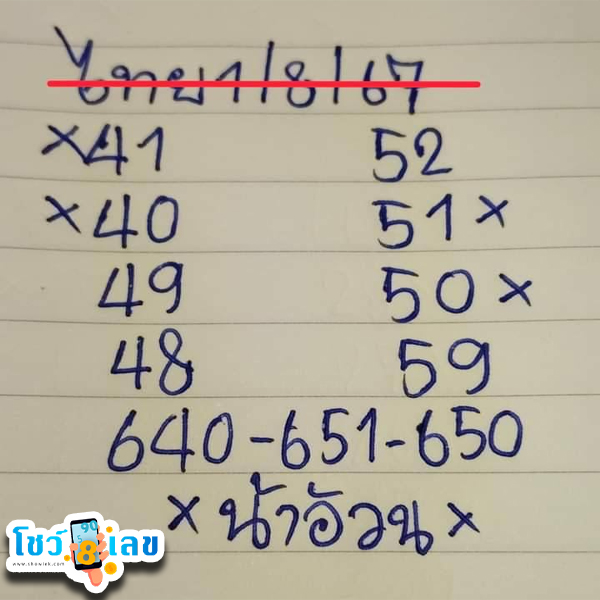 ไทย 1/8/67
×41 52
×40 51×
49 50×
48 59
640-651-650
×น้าอ้วน×
โชว์เลข
www.showlek.com